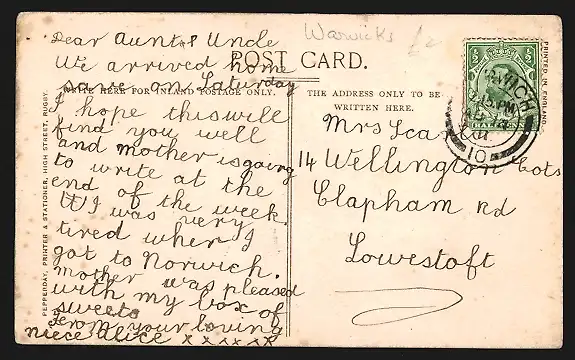 Warwicks £2
Dear Aunt & Uncle
We arrived home
save on Saturday
I hope this will
find you well
and mother is going
to write at the
end of the week.
I was very
tired when I
got to Norwich.
mother was pleased
with my box of
sweets
From your loving
niece Alice x x x x x x
POST CARD.
WRITE HERE FOR INLAND POSTAGE ONLY.
THE ADDRESS ONLY TO BE
WRITTEN HERE.
Mrs
14 Wellington Cots
Clapham Rd
Lowestoft
PEPPERDAY, PRINTER & STATIONER, HIGH STREET, RUGBY.
PRINTED IN ENGLAND